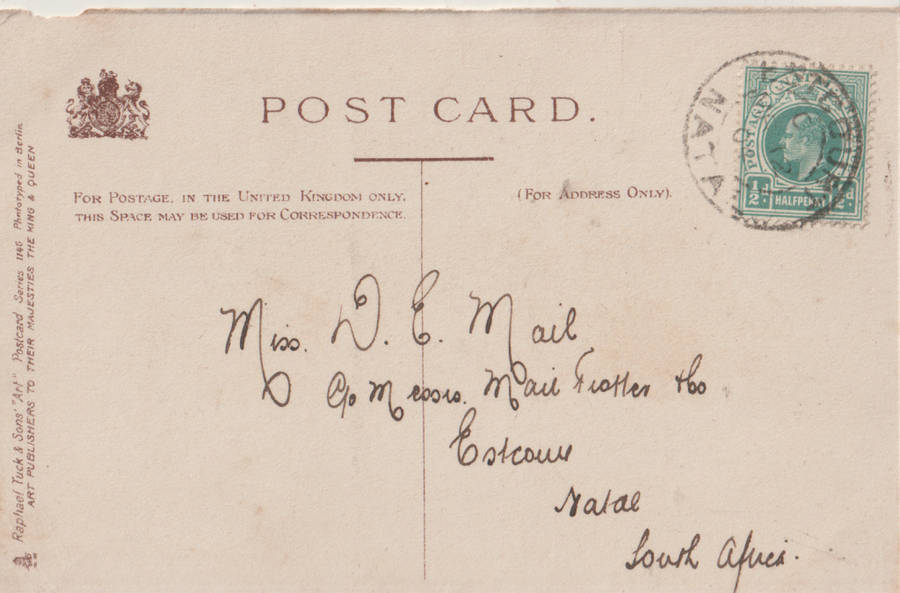 POST CARD.
FOR POSTAGE, IN THE UNITED KINGDOM ONLY,
THIS SPACE MAY BE USED FOR CORRESPONDENCE.
(FOR ADDRESS ONLY).
NATAL
POSTAGE
½d. HALFPENNY ½d.
Miss. D. E. Mail
c/o Messrs. Mail Trotter & Co
Estcourt
Natal
South Africa.
Raphael Tuck & Sons' "Art" Postcard Series 1146 Phototyped in Berlin
ART PUBLISHERS TO THEIR MAJESTIES THE KING & QUEEN